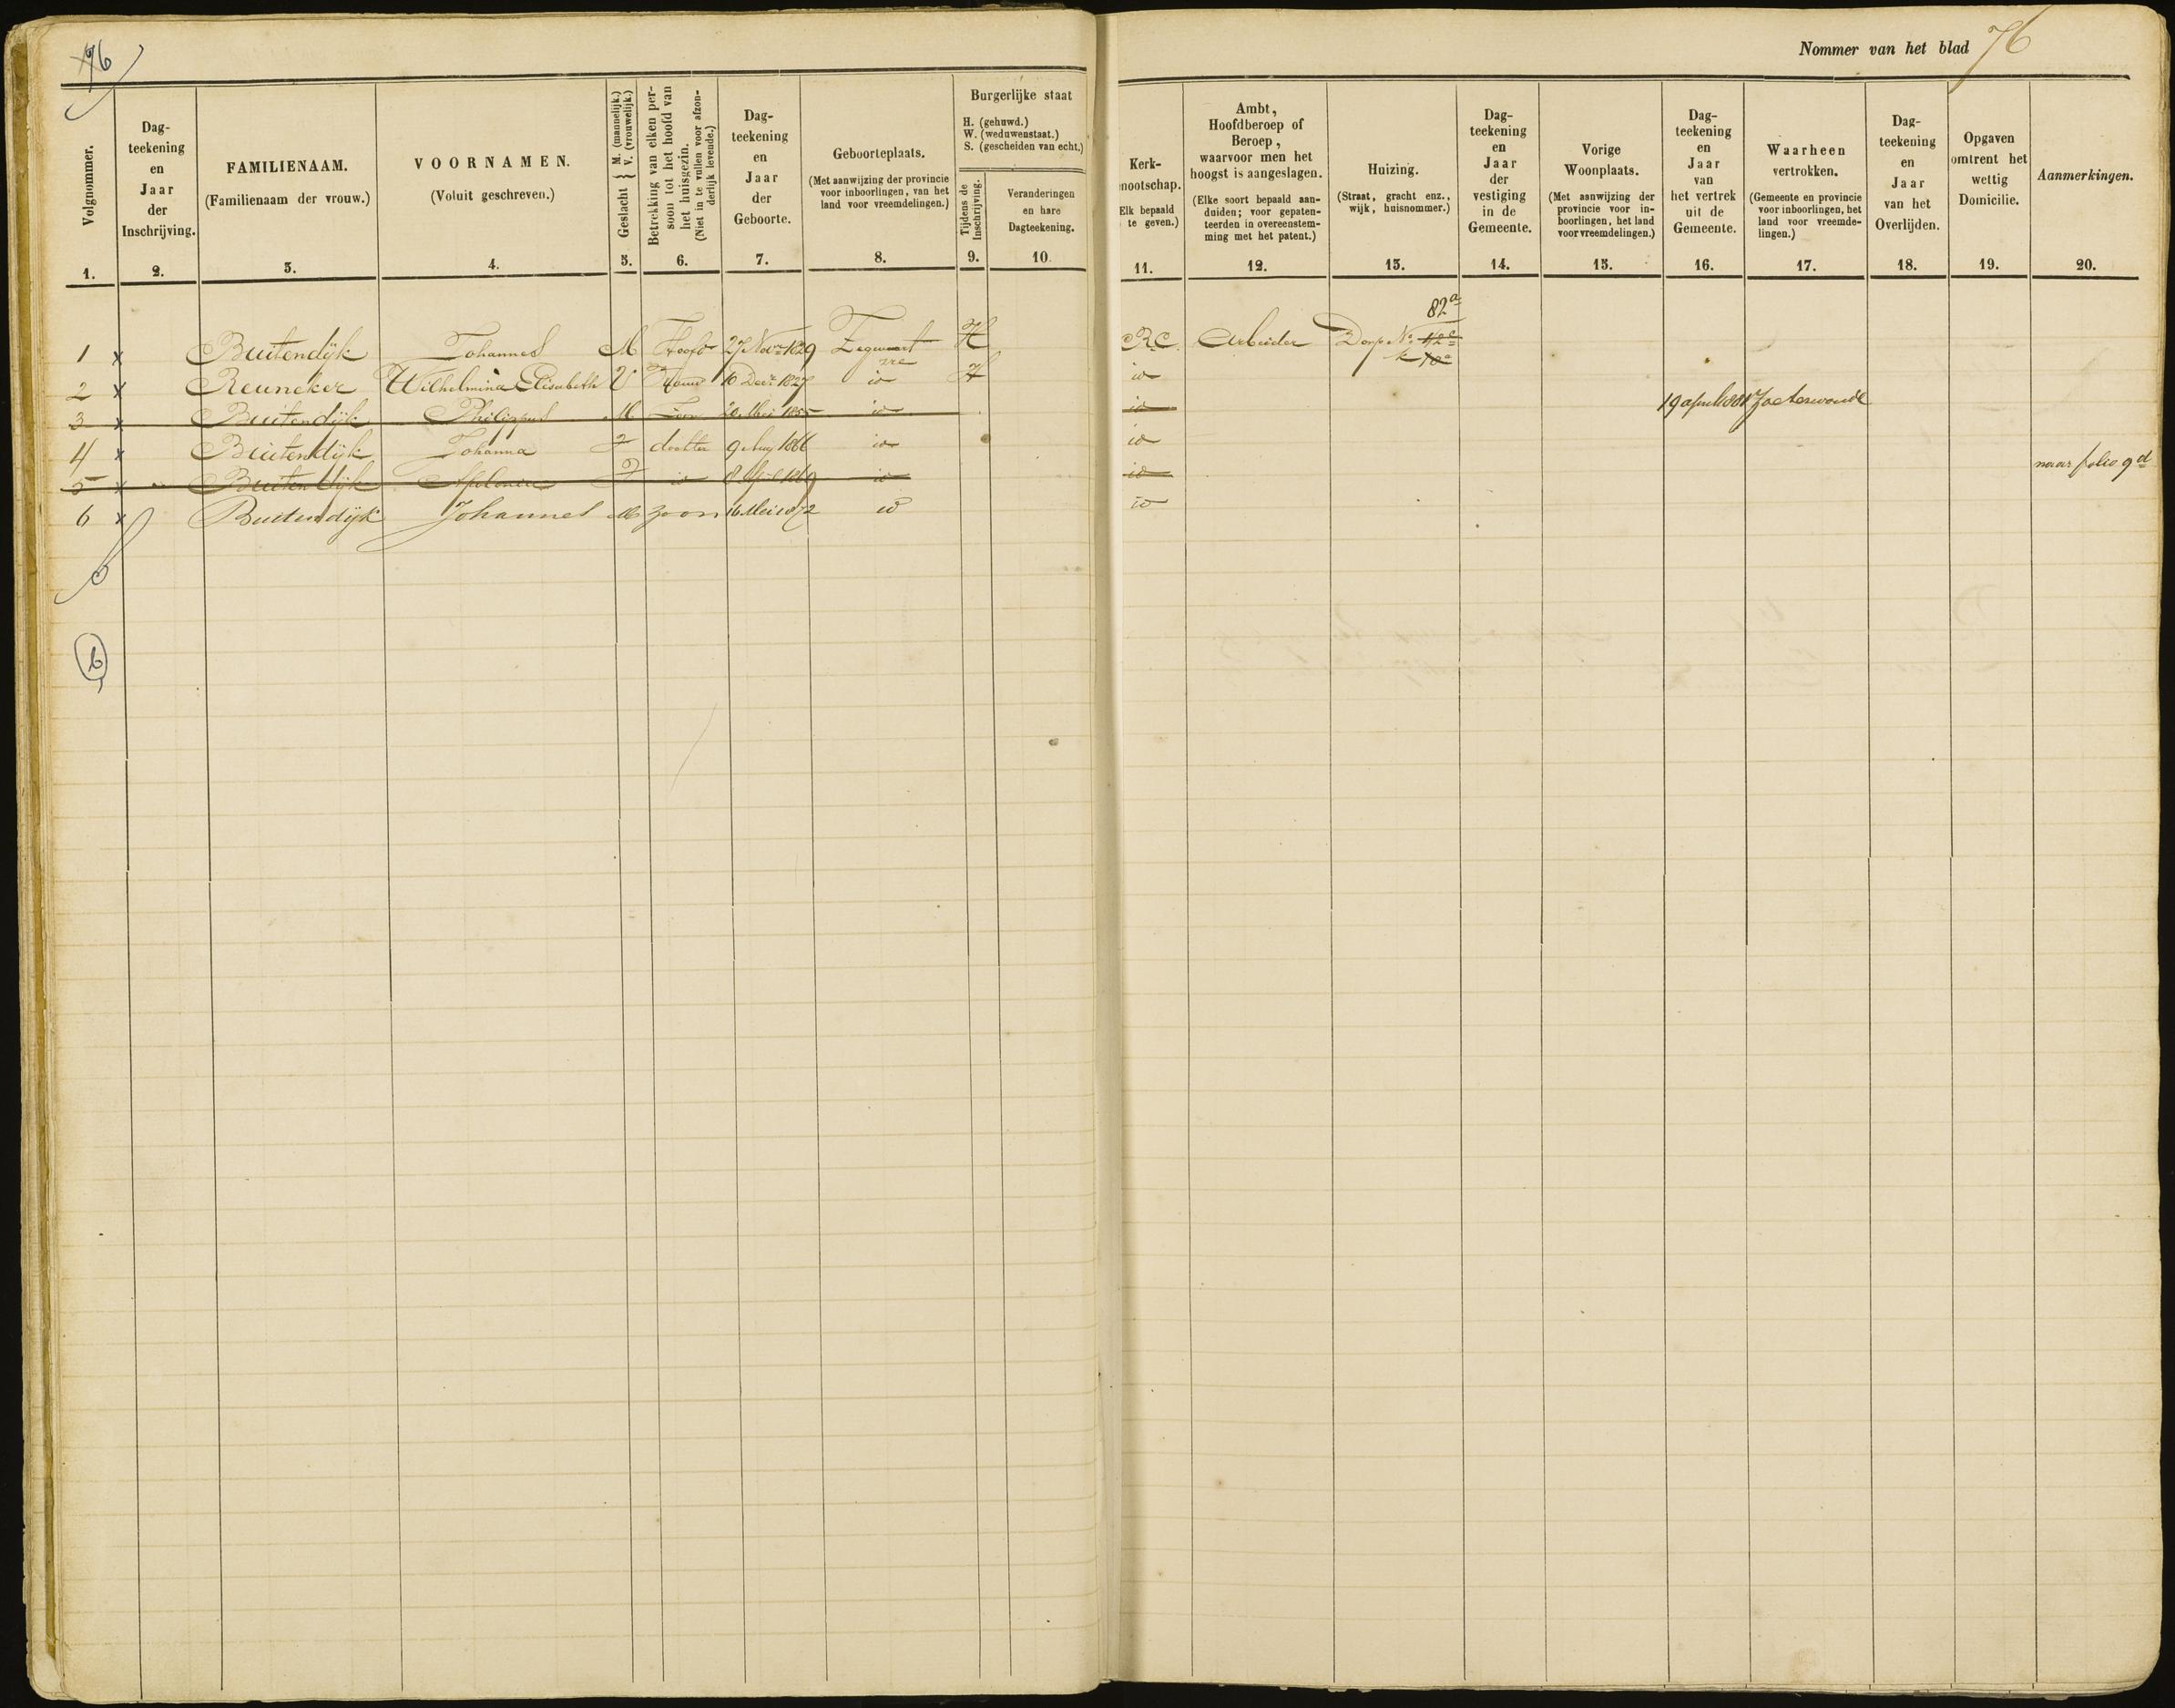 76
Nommer van het blad 76
Volgnommer.
1.
Dag-
teekening
en
Jaar
der
Inschrijving.
2.
FAMILIENAAM.
(Familienaam der vrouw.)
3.
VOORNAMEN.
(Voluit geschreven.)
4.
Geslacht } M. (mannelijk.)
V. (vrouwelijk.)
5.
Betrekking van elken per-
soon tot het hoofd van
het huisgezin.
(Niet in te vullen voor afzon-
derlijk levende.)
6.
Dag-
teekening
en
Jaar
der
Geboorte.
7.
Geboorteplaats.
(Met aanwijzing der provincie
voor inboorlingen, van het
land voor vreemdelingen.)
8.
Burgerlijke staat
H. (gehuwd.)
W. (weduwenstaat.)
S. (gescheiden van echt.)
Tijdens de
Inschrijving.
9.
Veranderingen
en hare
Dagteekening.
10.
Kerk-
nootschap.
Elk bepaald
te geven.)
11.
Ambt,
Hoofdberoep of
Beroep,
waarvoor men het
hoogst is aangeslagen.
(Elke soort bepaald aan-
duiden; voor gepaten-
teerden in overeenstem-
ming met het patent.)
12.
Huizing.
(Straat, gracht enz.,
wijk, huisnommer.)
13.
Dag-
teekening
en
Jaar
der
vestiging
in de
Gemeente.
14.
Vorige
Woonplaats.
(Met aanwijzing der
provincie voor in-
boorlingen, het land
voor vreemdelingen.)
15.
Dag-
teekening
en
Jaar
van
het vertrek
uit de
Gemeente.
16.
Waarheen
vertrokken.
(Gemeente en provincie
voor inboorlingen, het
land voor vreemde-
lingen.)
17.
Dag-
teekening
en
Jaar
van het
Overlijden.
18.
Opgaven
omtrent het
wettig
Domicilie.
19.
Aanmerkingen.
20.
82a
1 x Buitendijk Johannes M Hoofd 27 Novr 1829 Zegwaart H R.C. Arbeider Dorp No 42c
2 x Reuneker Wilhelmina Elisabeth V Vrouw 10 Decr 1827 io H io
3 x Buitendijk Philippus M Zoon 20 Mei 1855 io io 19 april 1881 Zoeterwoude
4 x Buitendijk Johanna V dochter 9 Aug 1866 io io
5 x Buitendijk Apolonia V io 8 April 1869 io io naar folio 9d
6 x Buitendijk Johannes M zoon 16 Mei 1872 io io
6